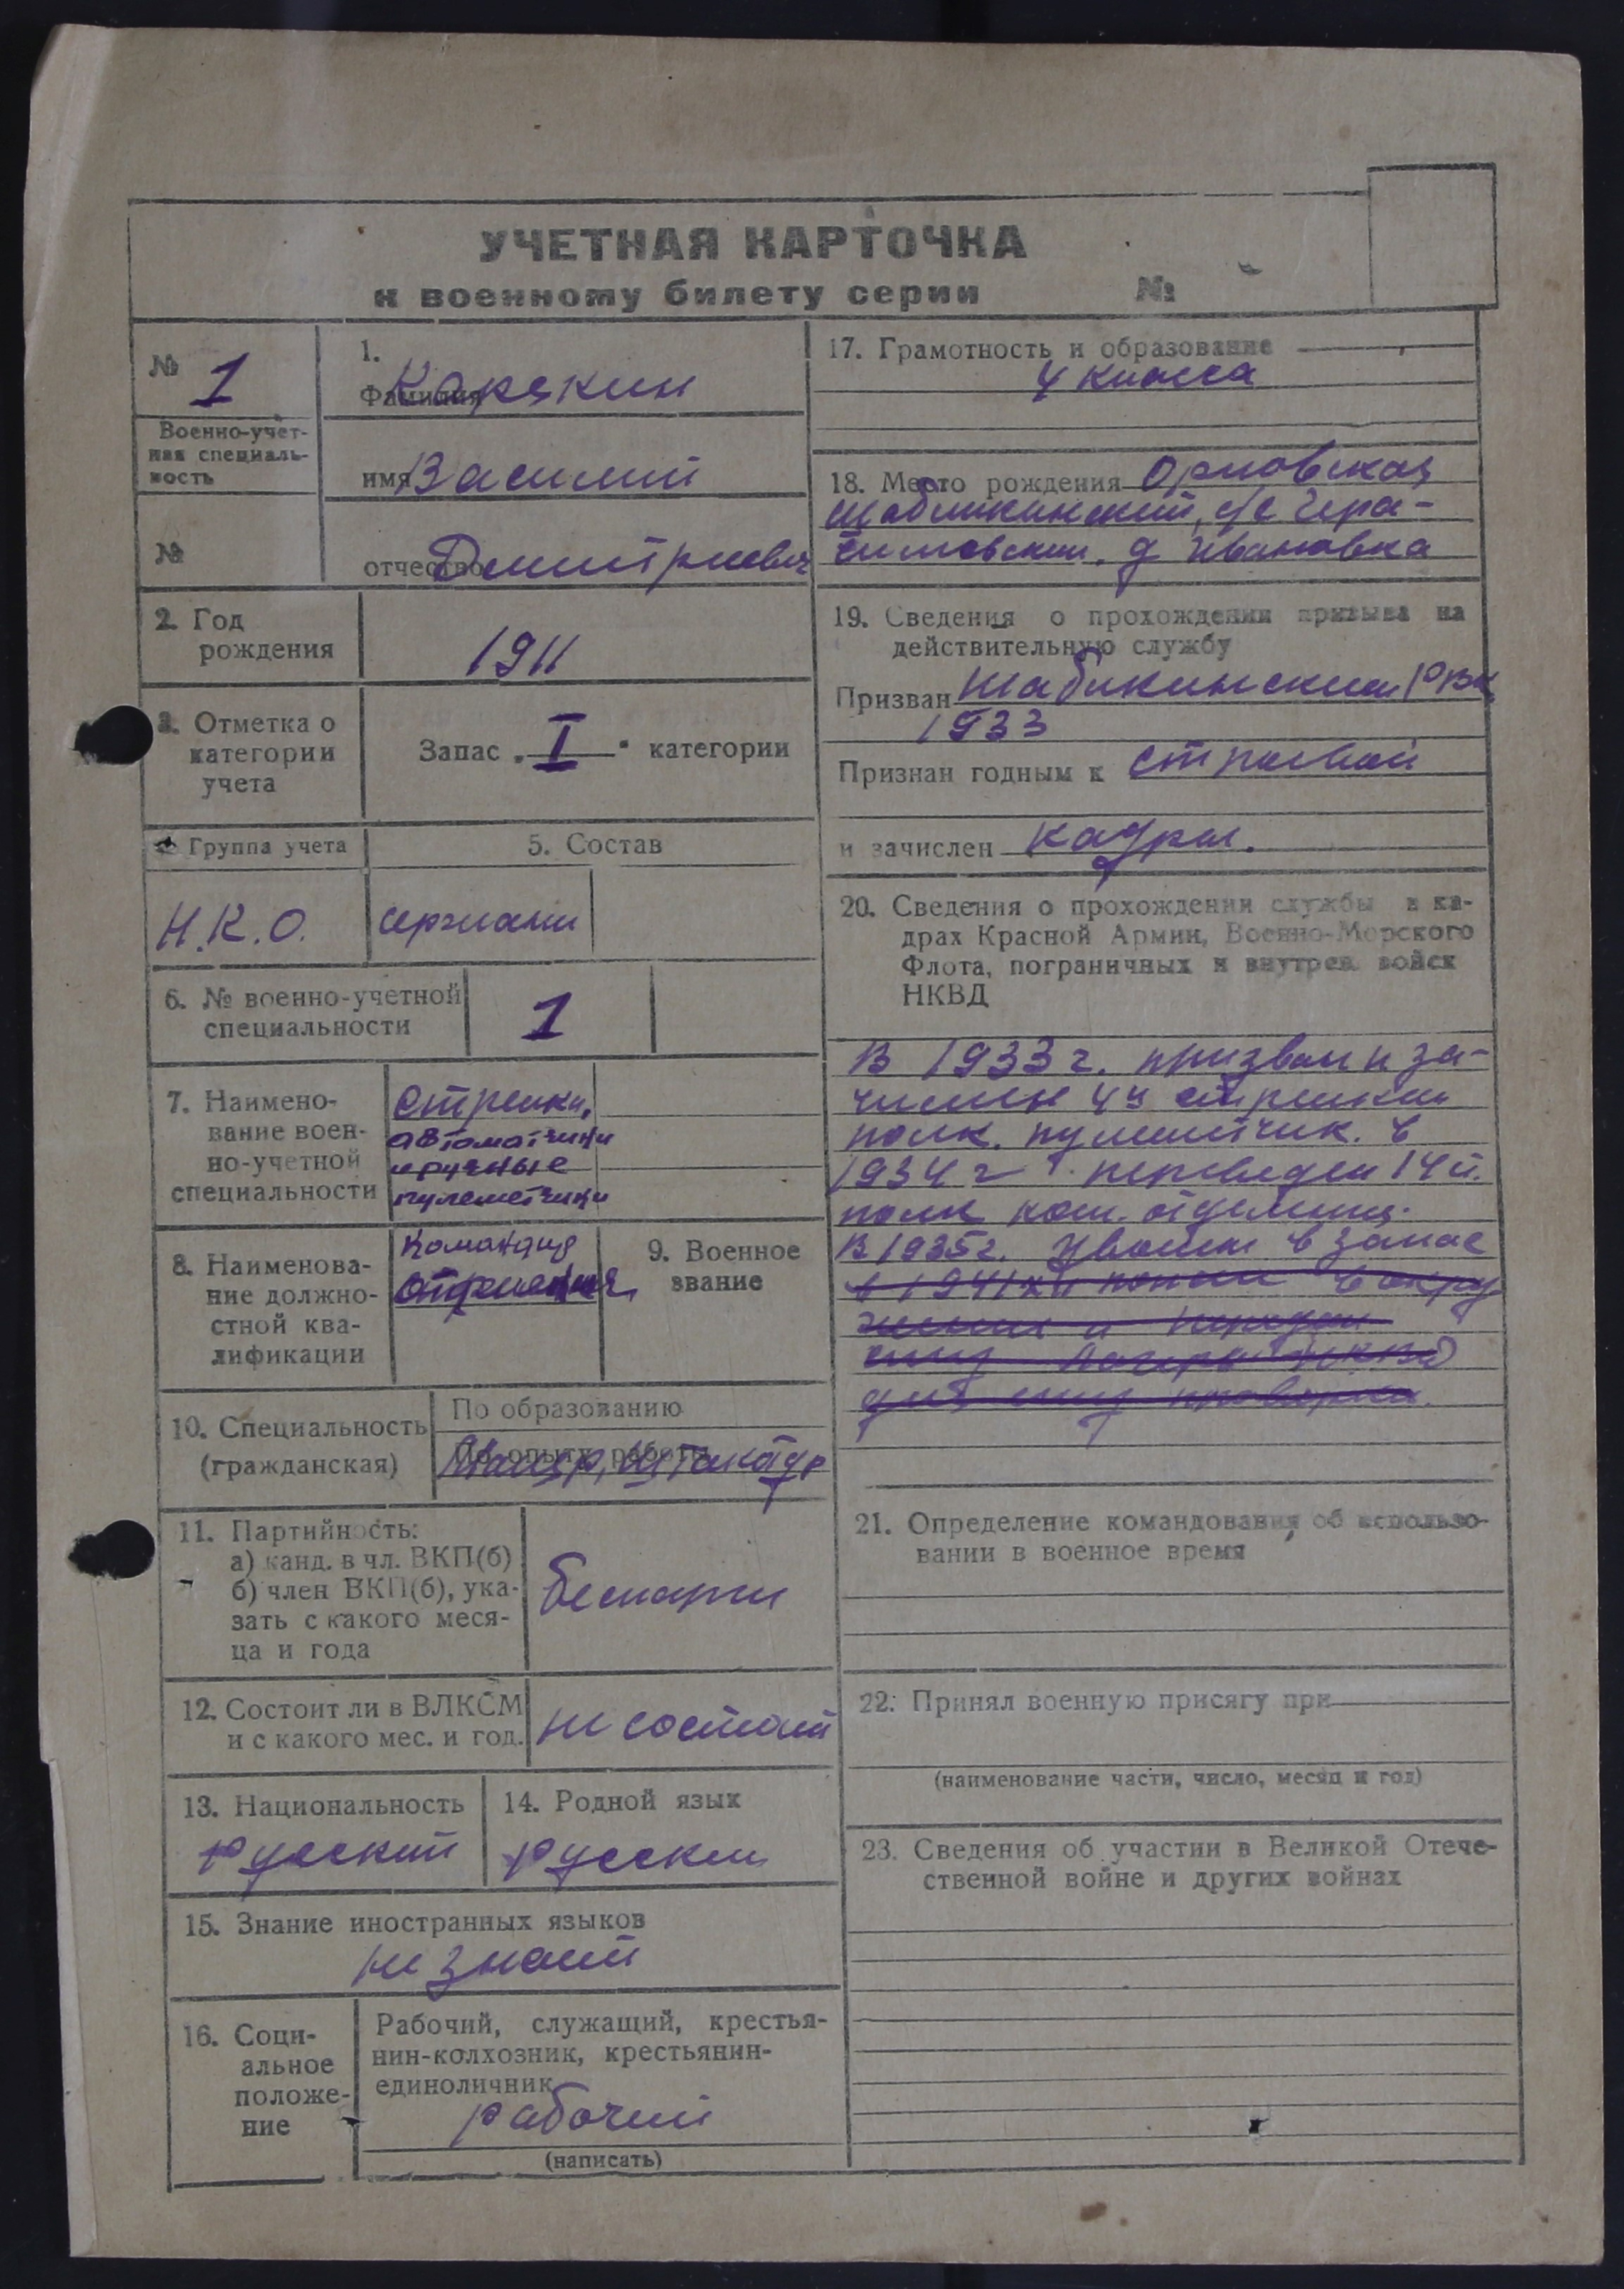 УЧЕТНАЯ КАРТОЧКА
к военному билету серии №
№ 1
Военно-учет-
ная специаль-
ность
№
1.
Фамилия Карекин
имя Василий
отчество Дмитриевич
2. Год
рождения
1911
3. Отметка о
категории
учета
Запас „I“ категории
Группа учета
Н.К.О.
5. Состав
сержанты
6. № военно-учетной
специальности
1
7. Наимено-
вание воен-
но-учетной
специальности
Стрелки,
автоматчики
и ручные
пулеметчики
8. Наименова-
ние должно-
стной ква-
лификации
Командир
отделения
9. Военное
звание
10. Специальность
(гражданская)
По образованию
По опыту работы
Маляр, штукатур
11. Партийность:
а) канд. в чл. ВКП(б)
б) член ВКП(б), ука-
зать с какого меся-
ца и года
беспарти
12. Состоит ли в ВЛКСМ
и с какого мес. и год.
не состоит
13. Национальность
русский
14. Родной язык
русский
15. Знание иностранных языков
не знает
16. Соци-
альное
положе-
ние
Рабочий, служащий, крестья-
нин-колхозник, крестьянин-
единоличник
рабочий
(написать)
17. Грамотность и образование
4 класса
18. Место рождения Орловская
Шаблыкинский, с/с Гера-
симовский. д Ивановка
19. Сведения о прохождении призыва на
действительную службу
Призван Шаблыкинским РВК
1933
Признан годным к строевой
и зачислен кадры.
20. Сведения о прохождении службы в ка-
драх Красной Армии, Военно-Морского
Флота, пограничных и внутрен. войск
НКВД
В 1933 г. призван и за-
числен 4й стрелкий
полк. пулеметчик. в
1934 г. переведен 14 й.
полк ком. отделения.
В 1935 г. уволен в запас
в 1941 XII попал в окру
жения и
лагерь НКВД
проверка.
21. Определение командования об использо-
вании в военное время
22. Принял военную присягу при
(наименование части, число, месяц и год)
23. Сведения об участии в Великой Отече-
ственной войне и других войнах